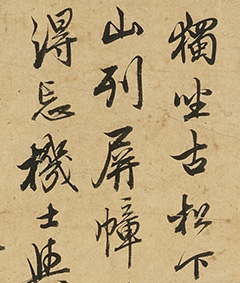 獨坐古松下
山列屏幛
得忘機士與